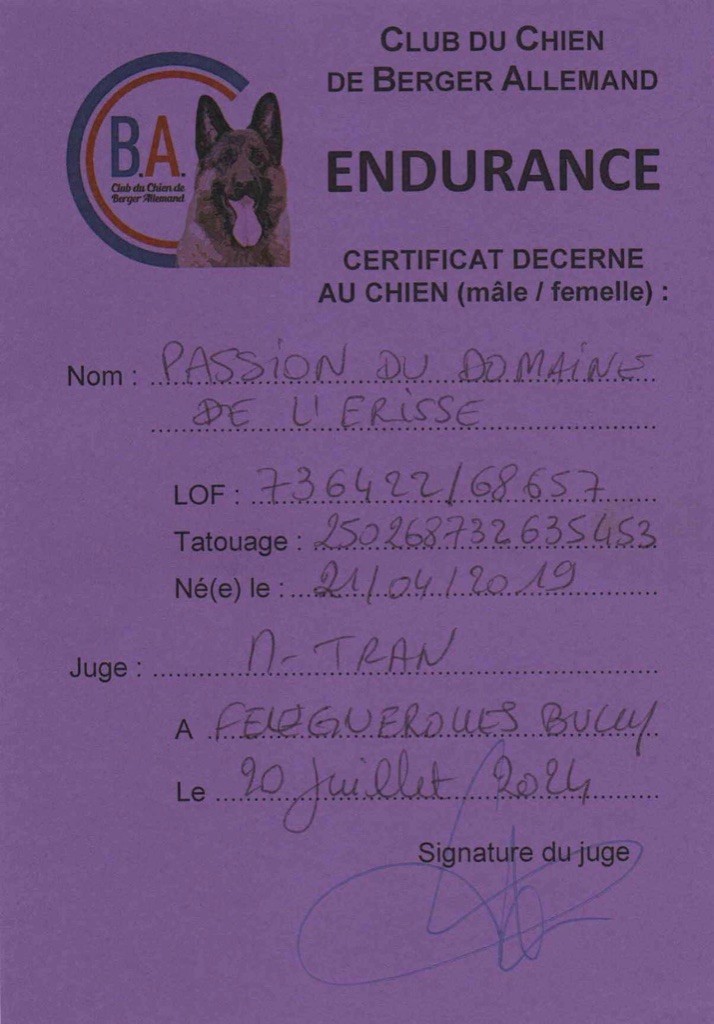 CLUB DU CHIEN
DE BERGER ALLEMAND
B.A.
Club du Chien de
Berger Allemand
ENDURANCE
CERTIFICAT DECERNE
AU CHIEN (mâle / femelle) :
Nom : PASSION DU DOMAINE
DE L'ERISSE
LOF : 736422/68657
Tatouage : 250268732635453
Né(e) le : 21/04/2019
Juge : TRAN
A BULLY
Le 20 Juillet 2024
Signature du juge